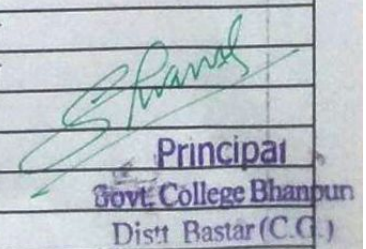 Principal
Govt. College Bhanpuri
Distt Bastar (C.G.)